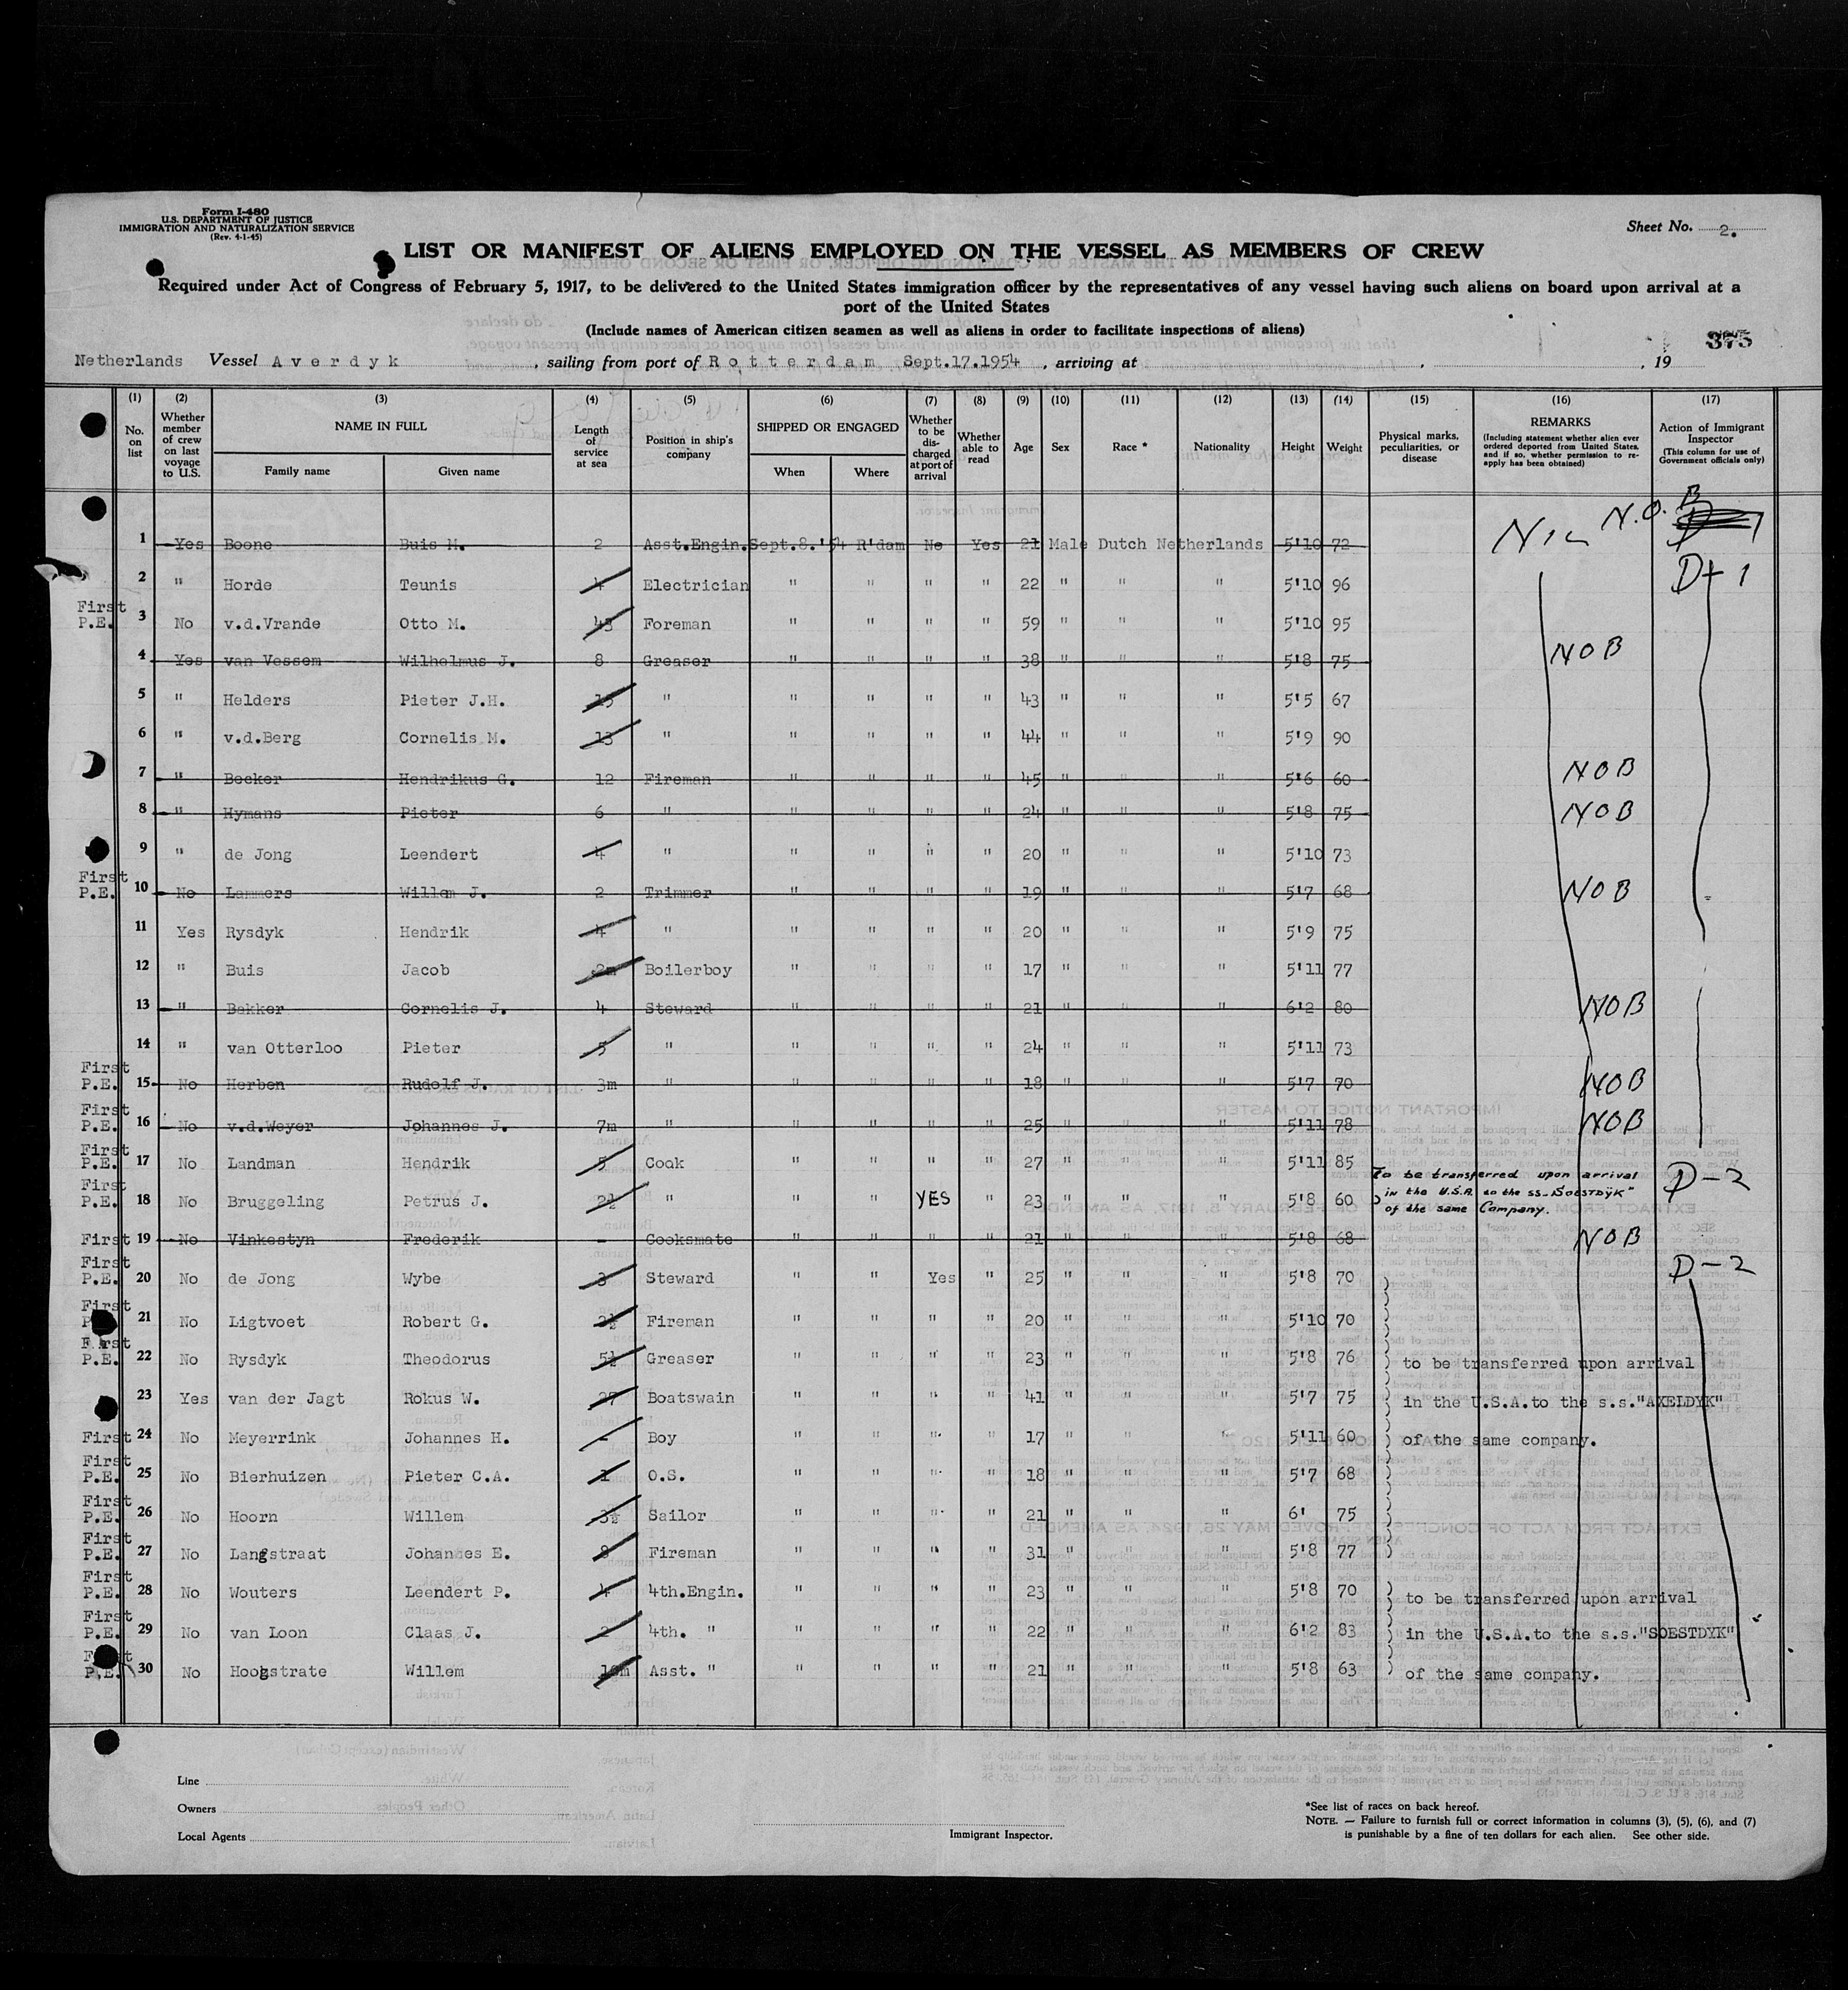 Form I-480
U.S. DEPARTMENT OF JUSTICE
IMMIGRATION AND NATURALIZATION SERVICE
(Rev. 4-1-45)
Sheet No. 2.
LIST OR MANIFEST OF ALIENS EMPLOYED ON THE VESSEL AS MEMBERS OF CREW
Required under Act of Congress of February 5, 1917, to be delivered to the United States immigration officer by the representatives of any vessel having such aliens on board upon arrival at a
port of the United States
(Include names of American citizen seamen as well as aliens in order to facilitate inspections of aliens)
375
Netherlands Vessel Averdyk, sailing from port of Rotterdam Sept.17.1954, arriving at , , 19
(1) (2) (3) (4) (5) (6) (7) (8) (9) (10) (11) (12) (13) (14) (15) (16) (17)
No. on list
Whether member of crew on last voyage to U.S.
NAME IN FULL
Family name Given name
Length of service at sea
Position in ship's company
SHIPPED OR ENGAGED
When Where
Whether to be discharged at port of arrival
Whether able to read
Age Sex Race * Nationality Height Weight
Physical marks, peculiarities, or disease
REMARKS
(Including statement whether alien ever ordered deported from United States, and if so, whether permission to reapply has been obtained)
Action of Immigrant Inspector
(This column for use of Government officials only)
1 Yes Boone Buis M. 2 Asst.Engin. Sept.8.'54 R'dam No Yes 21 Male Dutch Netherlands 5'10 72 N.O.B
2 " Horde Teunis 4 Electrician " " " " 22 " " " 5'10 96 D+1
First P.E. 3 No v.d.Vrande Otto M. 43 Foreman " " " " 59 " " " 5'10 95
4 Yes van Vessem Wilhelmus J. 8 Greaser " " " " 38 " " " 5'8 75 NOB
5 " Helders Pieter J.H. 15 " " " " " 43 " " " 5'5 67
6 " v.d.Berg Cornelis M. 13 " " " " " 44 " " " 5'9 90
7 " Becker Hendrikus G. 12 Fireman " " " " 45 " " " 5'6 60 NOB
8 " Hymans Pieter 6 " " " " " 24 " " " 5'8 75 NOB
9 " de Jong Leendert 4 " " " " " 20 " " " 5'10 73
First P.E. 10 No Lammers Willem J. 2 Trimmer " " " " 19 " " " 5'7 68 NOB
11 Yes Rysdyk Hendrik 4 " " " " " 20 " " " 5'9 75
12 " Buis Jacob 2m Boilerboy " " " " 17 " " " 5'11 77
13 " Bakker Cornelis J. 4 Steward " " " " 21 " " " 6'2 80 NOB
14 " van Otterloo Pieter 5 " " " " " 24 " " " 5'11 73
First P.E. 15 No Herben Rudolf J. 3m " " " " " 18 " " " 5'7 70 NOB
First P.E. 16 No v.d.Weyer Johannes J. 7m " " " " " 25 " " " 5'11 78 NOB
First P.E. 17 No Landman Hendrik 5 Cook " " " " 27 " " " 5'11 85
To be transferred upon arrival
First P.E. 18 No Bruggeling Petrus J. 2½ " " " YES " 23 " " " 5'8 60 in the U.S.A. to the ss. "SOESTDYK" D-2
of the same Company.
First 19 No Vinkestyn Frederik - Cooksmate " " " " 21 " " " 5'8 68 NOB
First P.E. 20 No de Jong Wybe 3 Steward " " Yes " 25 " " " 5'8 70 D-2
First P.E. 21 No Ligtvoet Robert G. 2½ Fireman " " " " 20 " " " 5'10 70
First P.E. 22 No Rysdyk Theodorus 5½ Greaser " " " " 23 " " " 5'8 76 to be transferred upon arrival
23 Yes van der Jagt Rokus W. 27 Boatswain " " " " 41 " " " 5'7 75 in the U.S.A.to the s.s."AXELDYK"
First 24 No Meyerrink Johannes H. - Boy " " " " 17 " " " 5'11 60 of the same company.
First P.E. 25 No Bierhuizen Pieter C.A. 1 O.S. " " " " 18 " " " 5'7 68
First P.E. 26 No Hoorn Willem 3½ Sailor " " " " 21 " " " 6' 75
First P.E. 27 No Langstraat Johannes E. 8 Fireman " " " " 31 " " " 5'8 77
First P.E. 28 No Wouters Leendert P. 4 4th.Engin. " " " " 23 " " " 5'8 70 to be transferred upon arrival
First P.E. 29 No van Loon Claas J. 2 4th. " " " " " 22 " " " 6'2 83 in the U.S.A.to the s.s."SOESTDYK"
First P.E. 30 No Hoogstrate Willem 10m Asst. " " " " " 21 " " " 5'8 63 of the same company.
Line
Owners
Local Agents
Immigrant Inspector.
*See list of races on back hereof.
NOTE. — Failure to furnish full or correct information in columns (3), (5), (6), and (7)
is punishable by a fine of ten dollars for each alien. See other side.